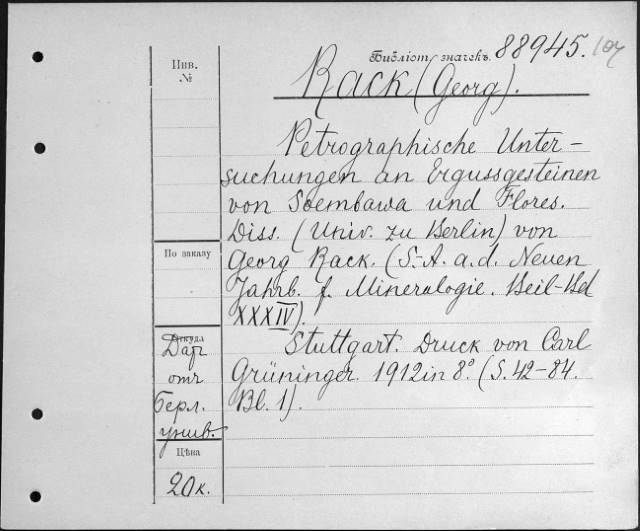 Библіот. значекъ. 88945.
Инв.
№
Rack (Georg).
Petrographische Unter-
suchungen an Ergussgesteinen
von Soembawa und Flores.
Diss. (Univ. zu Berlin) von
По заказу
Georg Rack. (S.-A. a. d. Neuen
Jahrb. f. Mineralogie. Beil-Bd
XXXIV).
Откуда
Дар
отъ
Берл.
унив.
Stuttgart. Druck von Carl
Grüninger. 1912 in 8°. (S. 42-84.
Bl. 1).
Цѣна
20 к.